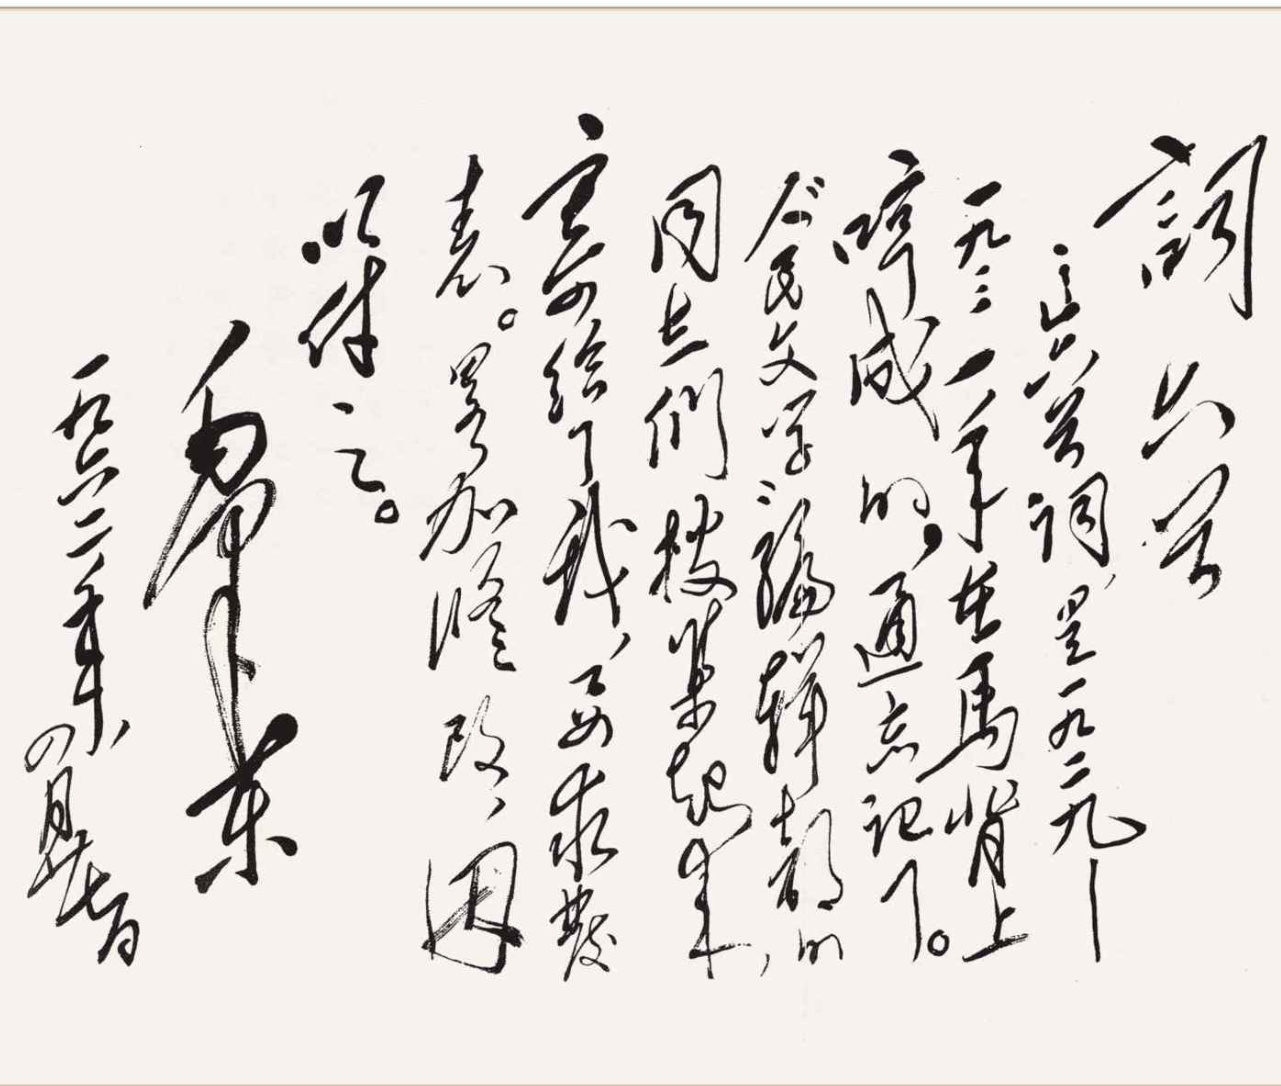 詞六首
這六首詞,是一九二九—
一九三一年在馬背上
哼成的,通忘記了。
人民文学編輯部的
同志們搜集起来,
寄給了我,要求發
表。畧加修改,因
以付之。
毛澤東
一九六二年四月廿七日